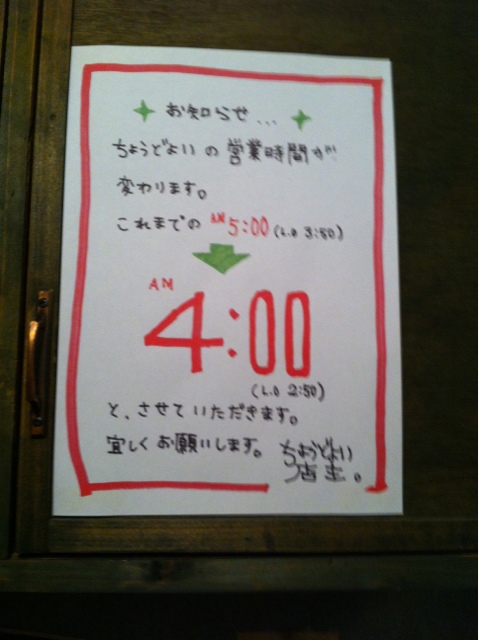 お知らせ...
ちょうどよいの営業時間が
変わります。
これまでの AM 5:00 (L.O 3:50)
AM
4:00
(L.O 2:50)
と、させていただきます。
宜しくお願いします。
ちょうどよい
店主。